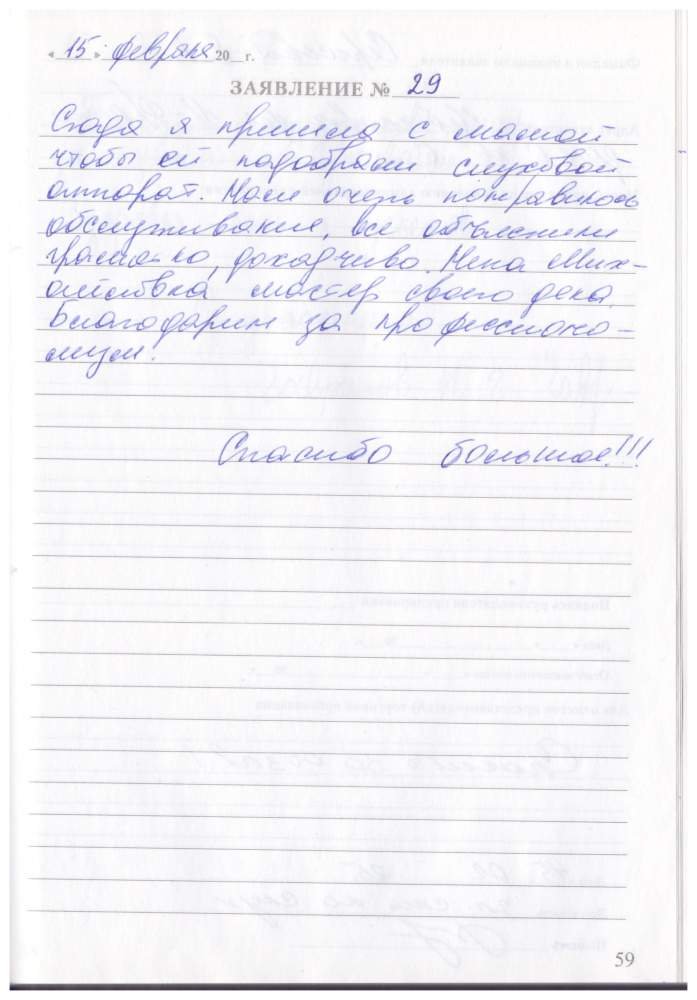 « 15 » февраля 20 г.
ЗАЯВЛЕНИЕ № 29
Сюда я пришла с мамой
чтобы ей подобрали слуховой
аппарат. Нам очень понравилось
обслуживание, все объяснили
грамотно, доходчиво. Нина Мих-
айловна мастер своего дела.
Благодарим за профессиона-
лизм.
Спасибо большое!!!
59